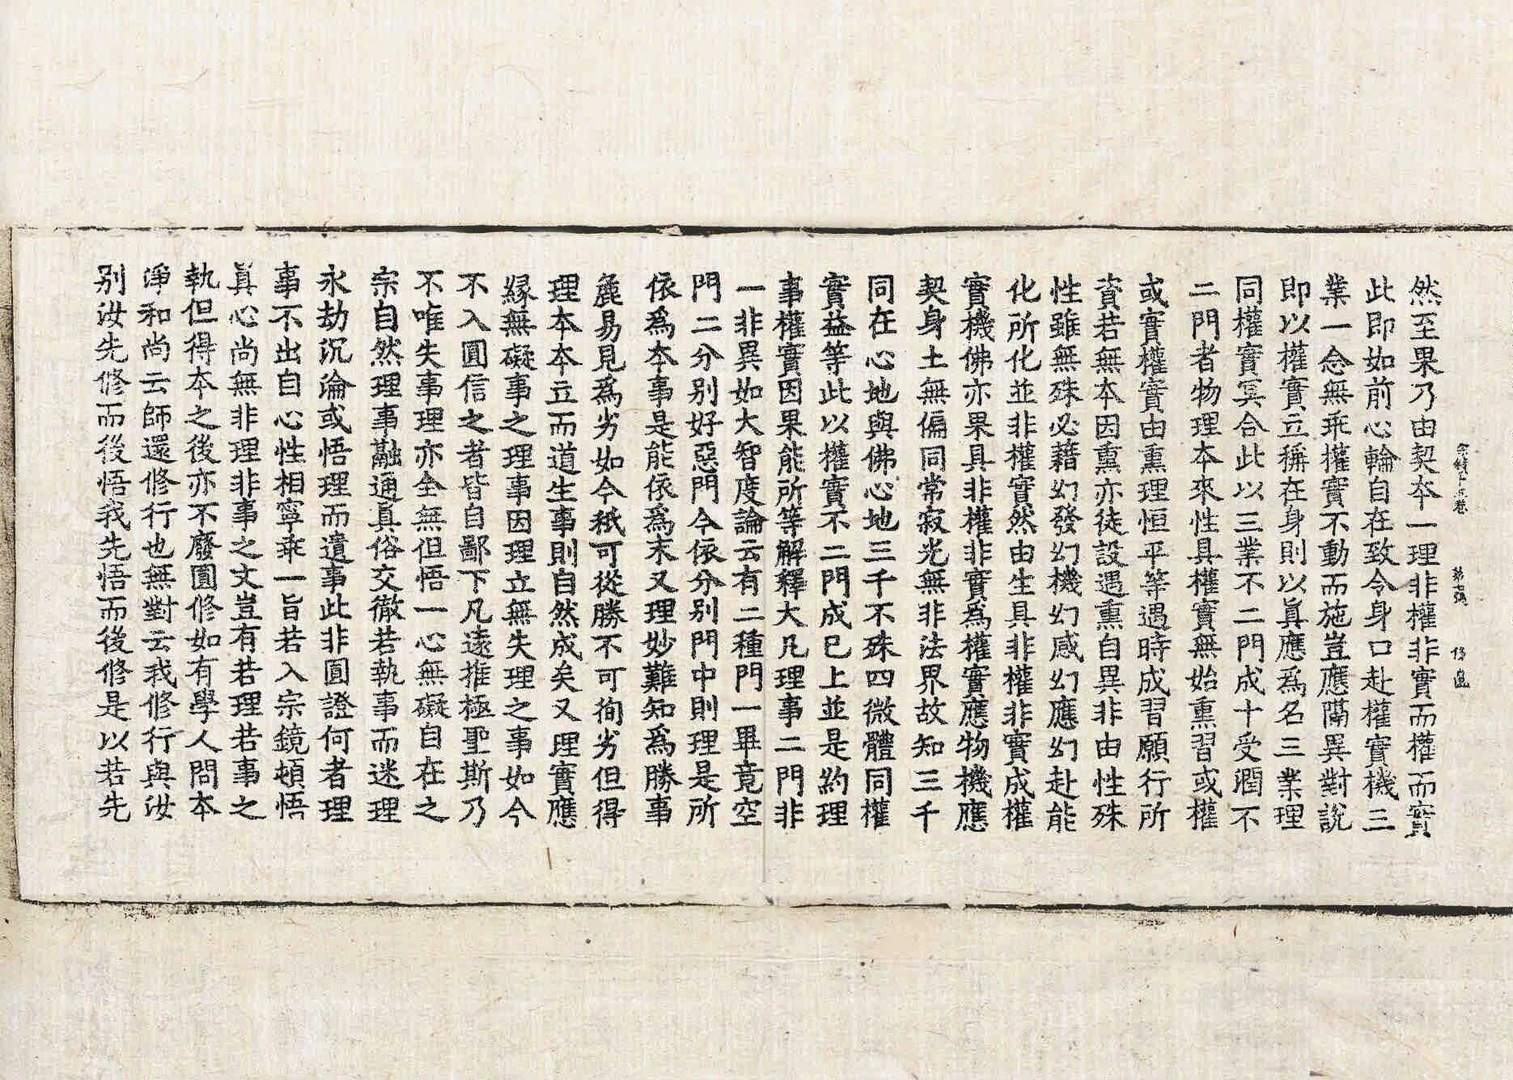 然至果乃由契夲一理非權非實而權而實
此即如前心輪自在致令身口赴權實機三
業一念無乖權實不動而施豈應隔異對說
即以權實立稱在身則以眞應爲名三業理
同權實冥合此以三業不二門成十受潤不
二門者物理夲來性具權實無始熏習或權
或實權實由熏理恒平等遇時成習願行所
資若無本因熏亦徒設遇熏自異非由性殊
性雖無殊必藉幻發幻機幻感幻應幻赴能
化所化並非權實然由生具非權非實成權
實機佛亦果具非權非實爲權實應物機應
契身土無偏同常寂光無非法界故知三千
同在心地與佛心地三千不殊四微體同權
實益等此以權實不二門成已上並是約理
事權實因果能所等解釋大凡理事二門非
一非異如大智度論云有二種門一畢竟空
門二分別好惡門今依分別門中則理是所
依爲夲事是能依爲末又理妙難知爲勝事
麁易見爲劣如今秖可從勝不可徇劣但得
理夲夲立而道生事則自然成矣又理實應
緣無礙事之理事因理立無失理之事如今
不入圓信之者皆自鄙下凡遠推極聖斯乃
不唯失事理亦全無但悟一心無礙自在之
宗自然理事融通眞俗交徹若執事而迷理
永劫沉淪或悟理而遺事此非圓證何者理
事不出自心性相寧乖一旨若入宗鏡頓悟
眞心尚無非理非事之文豈有若理若事之
執但得夲之後亦不廢圓修如有學人問夲
淨和尚云師還修行也無對云我修行與汝
别汝先修而後悟我先悟而後修是以若先